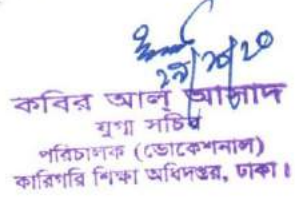 ২৯/৭/২০
কবির আল আসাদ
যুগ্ম সচিব
পরিচালক (ভোকেশনাল)
কারিগরি শিক্ষা অধিদপ্তর, ঢাকা।